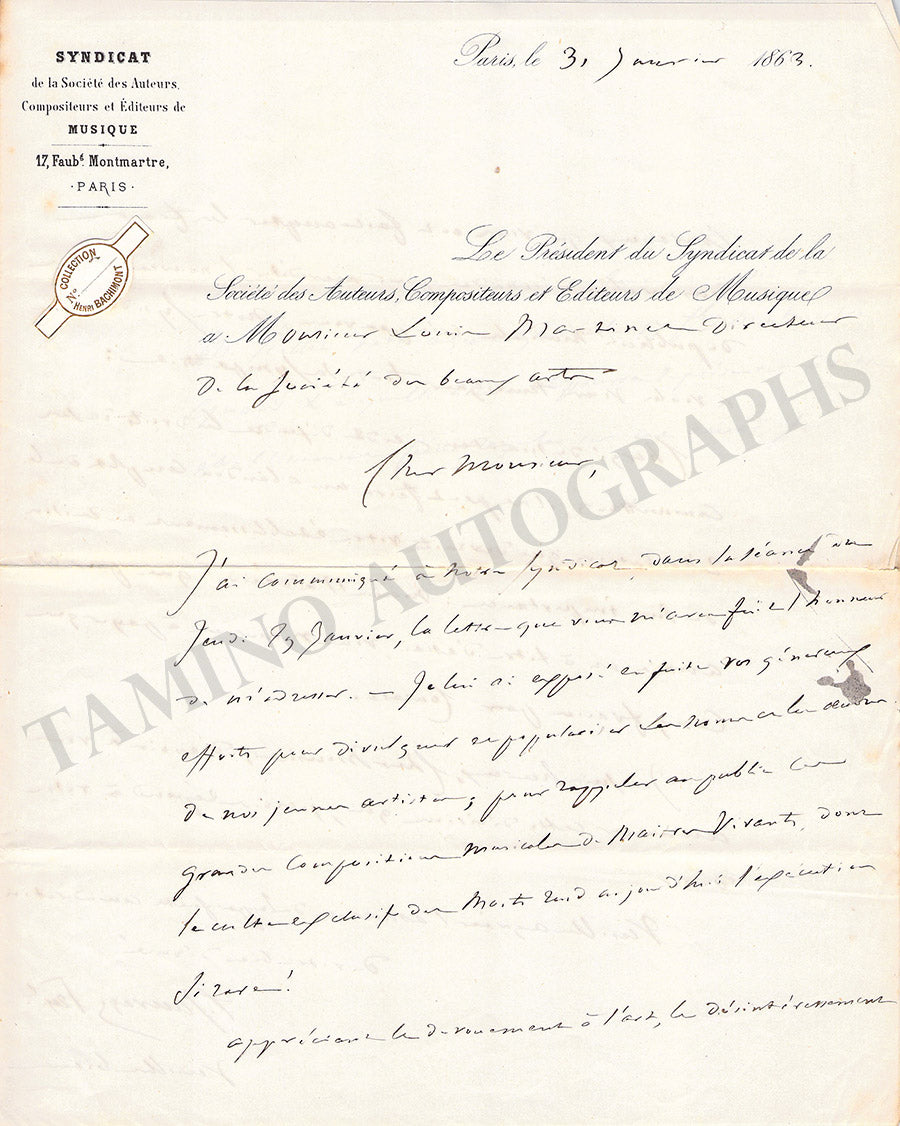 SYNDICAT
de la Société des Auteurs,
Compositeurs et Éditeurs de
MUSIQUE
17, Faubg Montmartre,
· PARIS ·
COLLECTION
No
HENRI BACHIMONT
Paris, le 31 Janvier 1863.
Le Président du Syndicat de la
Société des Auteurs, Compositeurs et Editeurs de Musique
a Monsieur Louis Martinet Directeur
De la Société des beaux arts
Cher Monsieur,
J'ai communiqué à notre Syndicat, dans la séance du
Jeudi 29 Janvier, la lettre que vous m'avez fait l'honneur
de m'adresser. — Je lui ai exposé ensuite vos généreux
efforts pour divulguer et populariser les noms et les œuvres
de nos jeunes artistes; pour rappeler au public ces
grandes compositions musicales de Maitres Vivants, dont
le culte exclusif des Morts rend aujourd'hui l'exécution
si rare!
appréciant le dévouement à l'art, le désintéressement
TAMINO AUTOGRAPHS